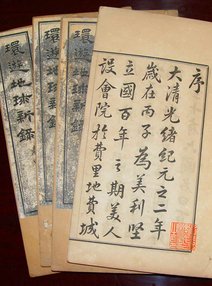 序
大清光緒紀元之二年
歲在丙子為美利堅
立國百年之期美人
設會院於費里地費城
環遊地球新錄
環遊地球新錄
環遊地球新錄